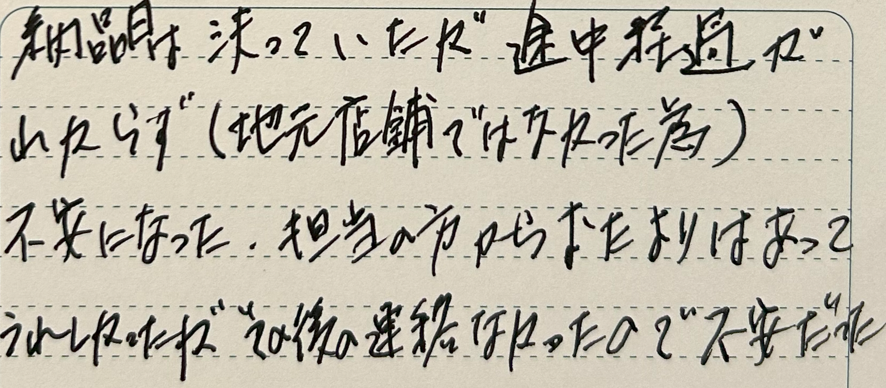 納品日は決っていたが途中経過が
わからず(地元店舗ではなかった為)
不安になった.担当の方からおたよりはあって
うれしかったが その後の連絡はなかったので不安だった